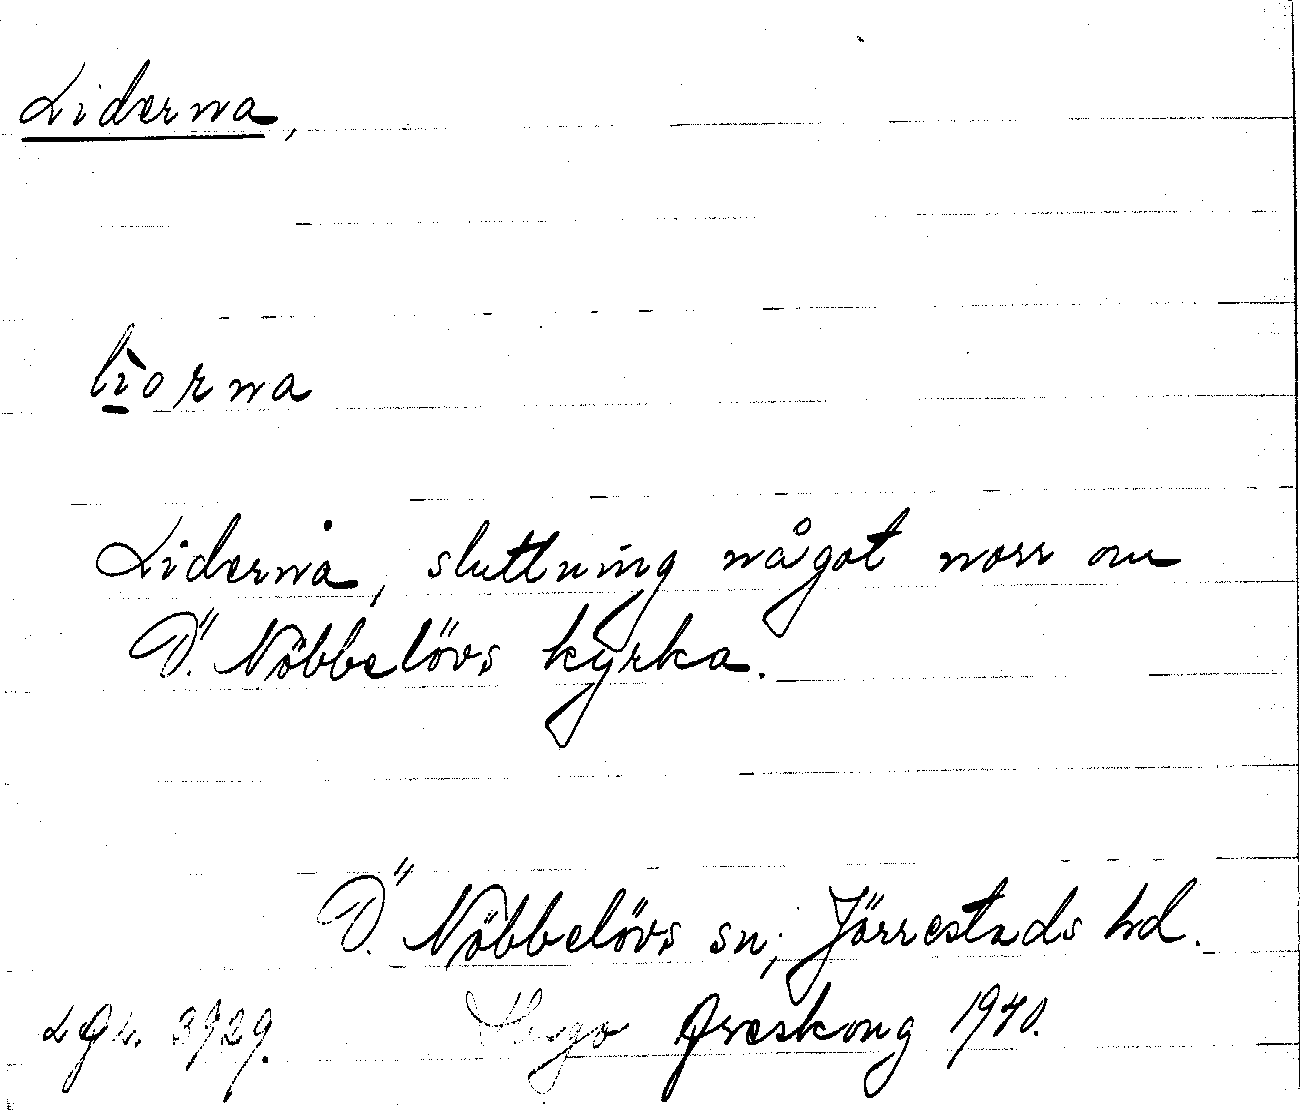 Liderna,
lìorna
Liderna, sluttning något norr om
Ö. Nöbbelövs kyrka.
Ö. Nöbbelövs sn, Järrestads hd.
3/29. 1940.